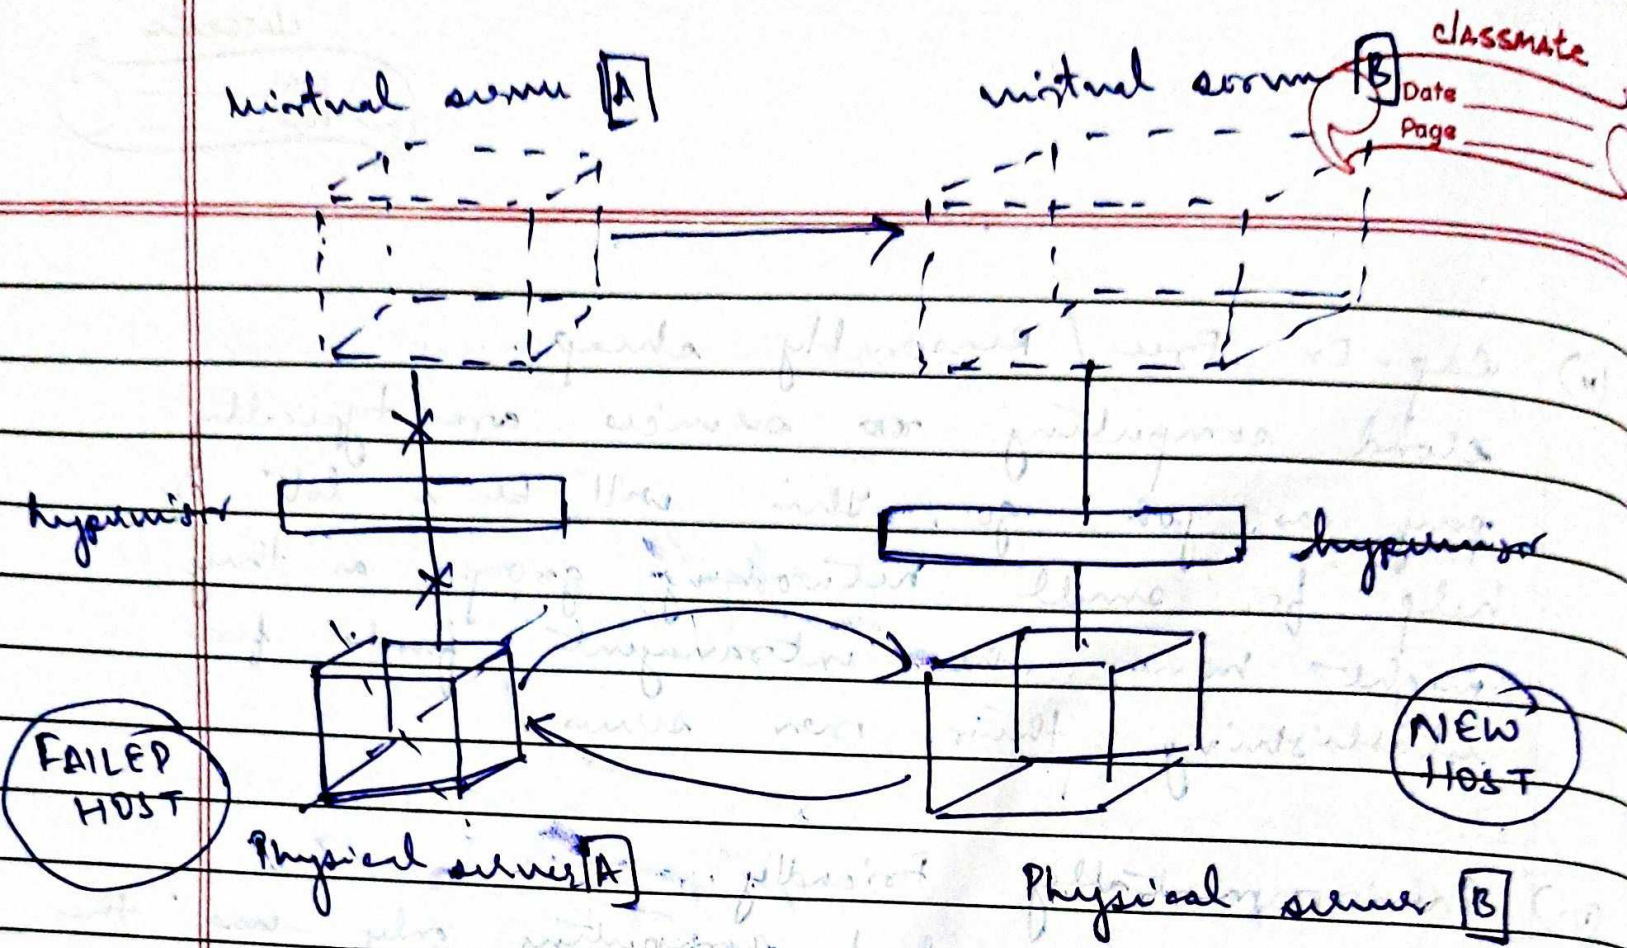 classmate
Date
Page
virtual server [A]
virtual server [B]
hypervisor
hypervisor
FAILED
HOST
NEW
HOST
Physical server [A]
Physical server [B]